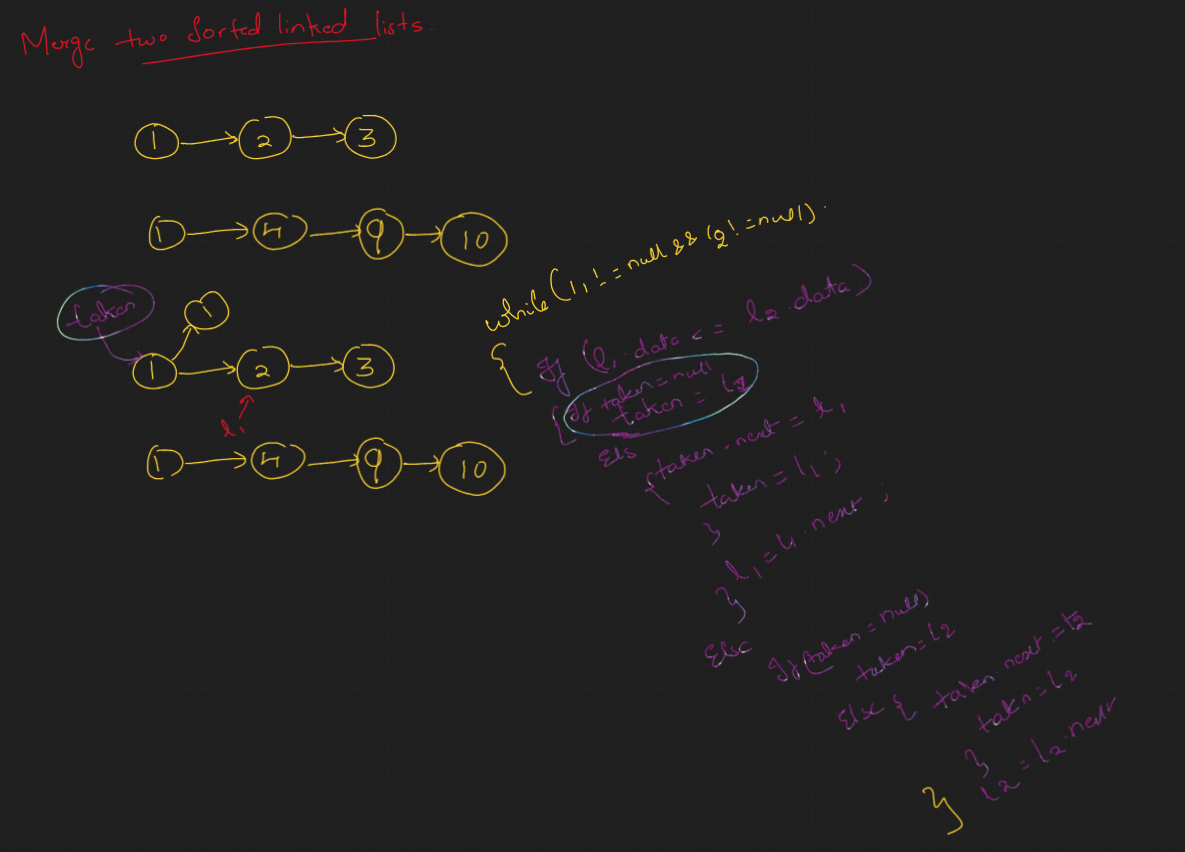 Merge two sorted linked lists.
1 2 3
1 4 9 10
taken
1
1 2 3
l1
1 4 9 10
while (l1 != null && l2 != null)
{ If (l1.data <= l2.data)
{ If taken = null
taken =
Els
{ taken.next = l1
taken = l1;
}
l1 = l1.next;
}
Else
If (taken = null)
taken = l2
Else { taken.next = l2
takn = l2
}
l2 = l2.next
}